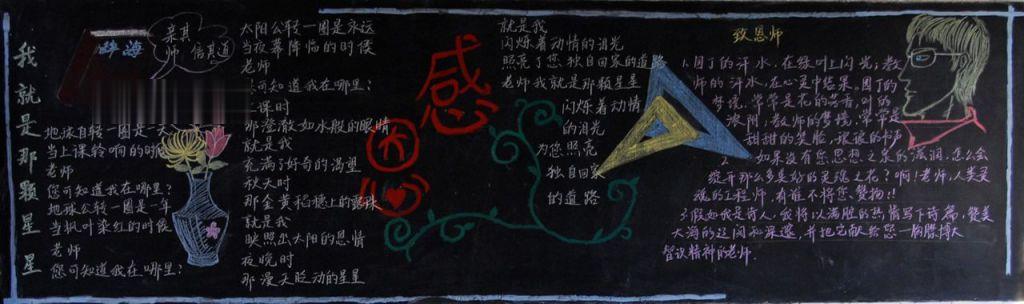 我就是那颗星星
辞海
亲其师
信其道
地球自转一圈是一天
当上课铃响的时候
老师
您可知道我在哪里?
地球公转一圈是一年
当枫叶染红的时候
老师
您可知道我在哪里?
太阳公转一圈是永远
当夜幕降临的时候
老师
您可知道我在哪里?
上课时
那澄澈如水般的眼睛
就是我
充满了好奇的渴望
秋天时
那金黄稻穗上的露珠
就是我
映照出太阳的恩情
夜晚时
那漫天眨动的星星
感
就是我
闪烁着动情的泪光
照亮了您独自回家的道路
老师我就是那颗星星
闪烁着动情
的泪光
为您照亮
独自回家
的道路
致恩师
1.园丁的汗水,在绿叶上闪光;教
师的汗水,在心灵中结果。园丁的
梦境,常常是花的芳香,叶的
浓阴,教师的梦境,常常是
甜甜的笑脸,琅琅的书声
2.如果没有您思想之泉的滋润,怎么会
绽开那么多美好的灵魂之花?啊!老师,人类灵
魂的工程师,有谁不将您赞物!!
3.假如我是诗人,我将以满腔的热情写下诗篇,赞美
大海的辽阔和深邃,并把它献给您—胸襟博大
智识精神的老师.